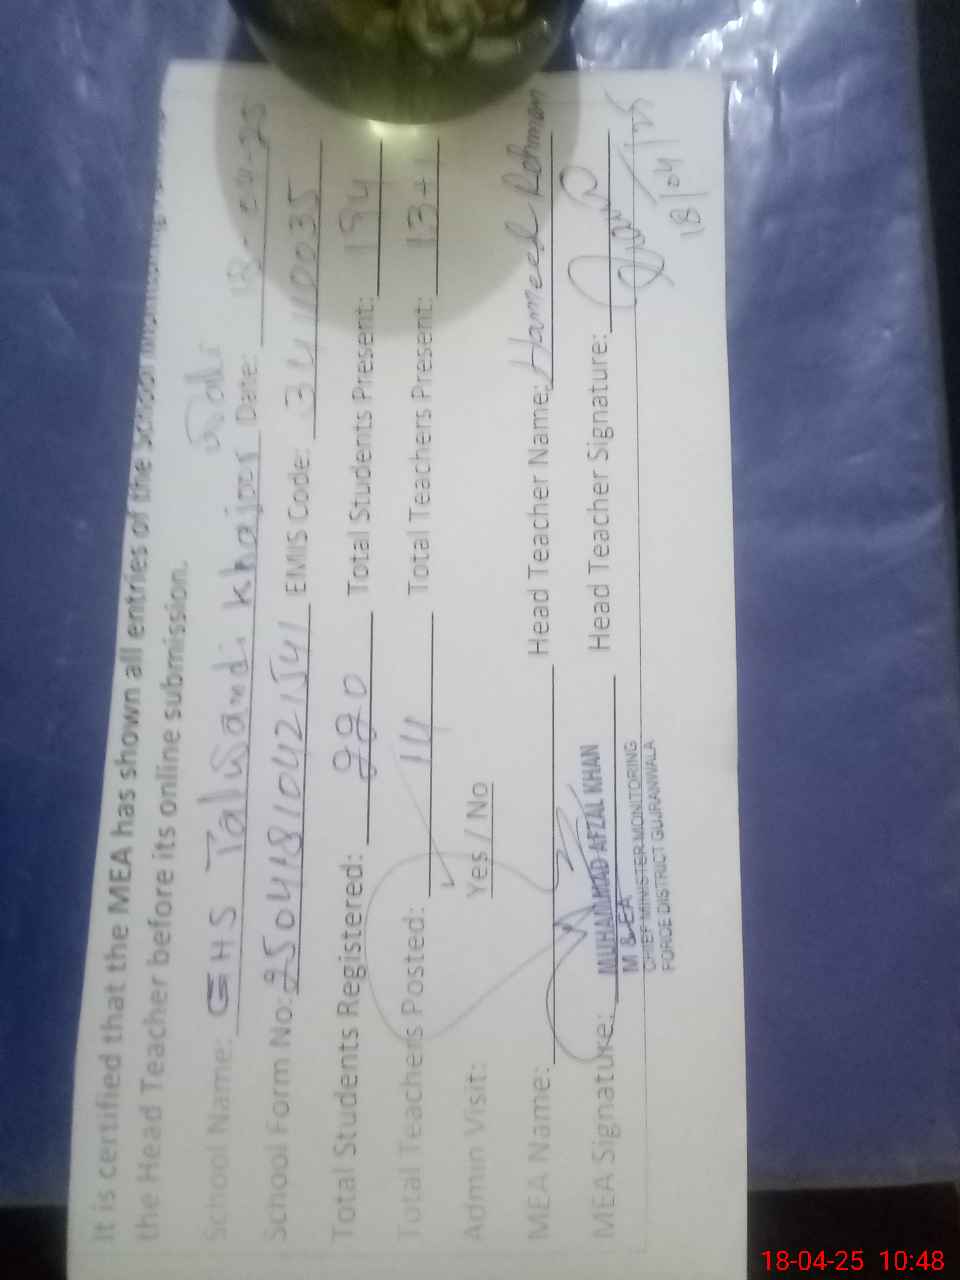 It is certified that the MEA has shown all entries of the School Monitoring
the Head Teacher before its online submission.
School Name: GHS Talwandi Khajoor Wali Date: 18-04-25
School Form No: 25044810421541 EMIS Code: 34110035
Total Students Registered: 220 Total Students Present: 194
Total Teachers Posted: 14 Total Teachers Present: 13+1
Admin Visit: Yes / No
MEA Name: Head Teacher Name: Hameed Rehman
MEA Signature: Head Teacher Signature:
18/04/25
MUHAMMAD AFZAL KHAN
M & EA
CHIEF MINISTER MONITORING
FORCE DISTRICT GUJRANWALA
18-04-25 10:48